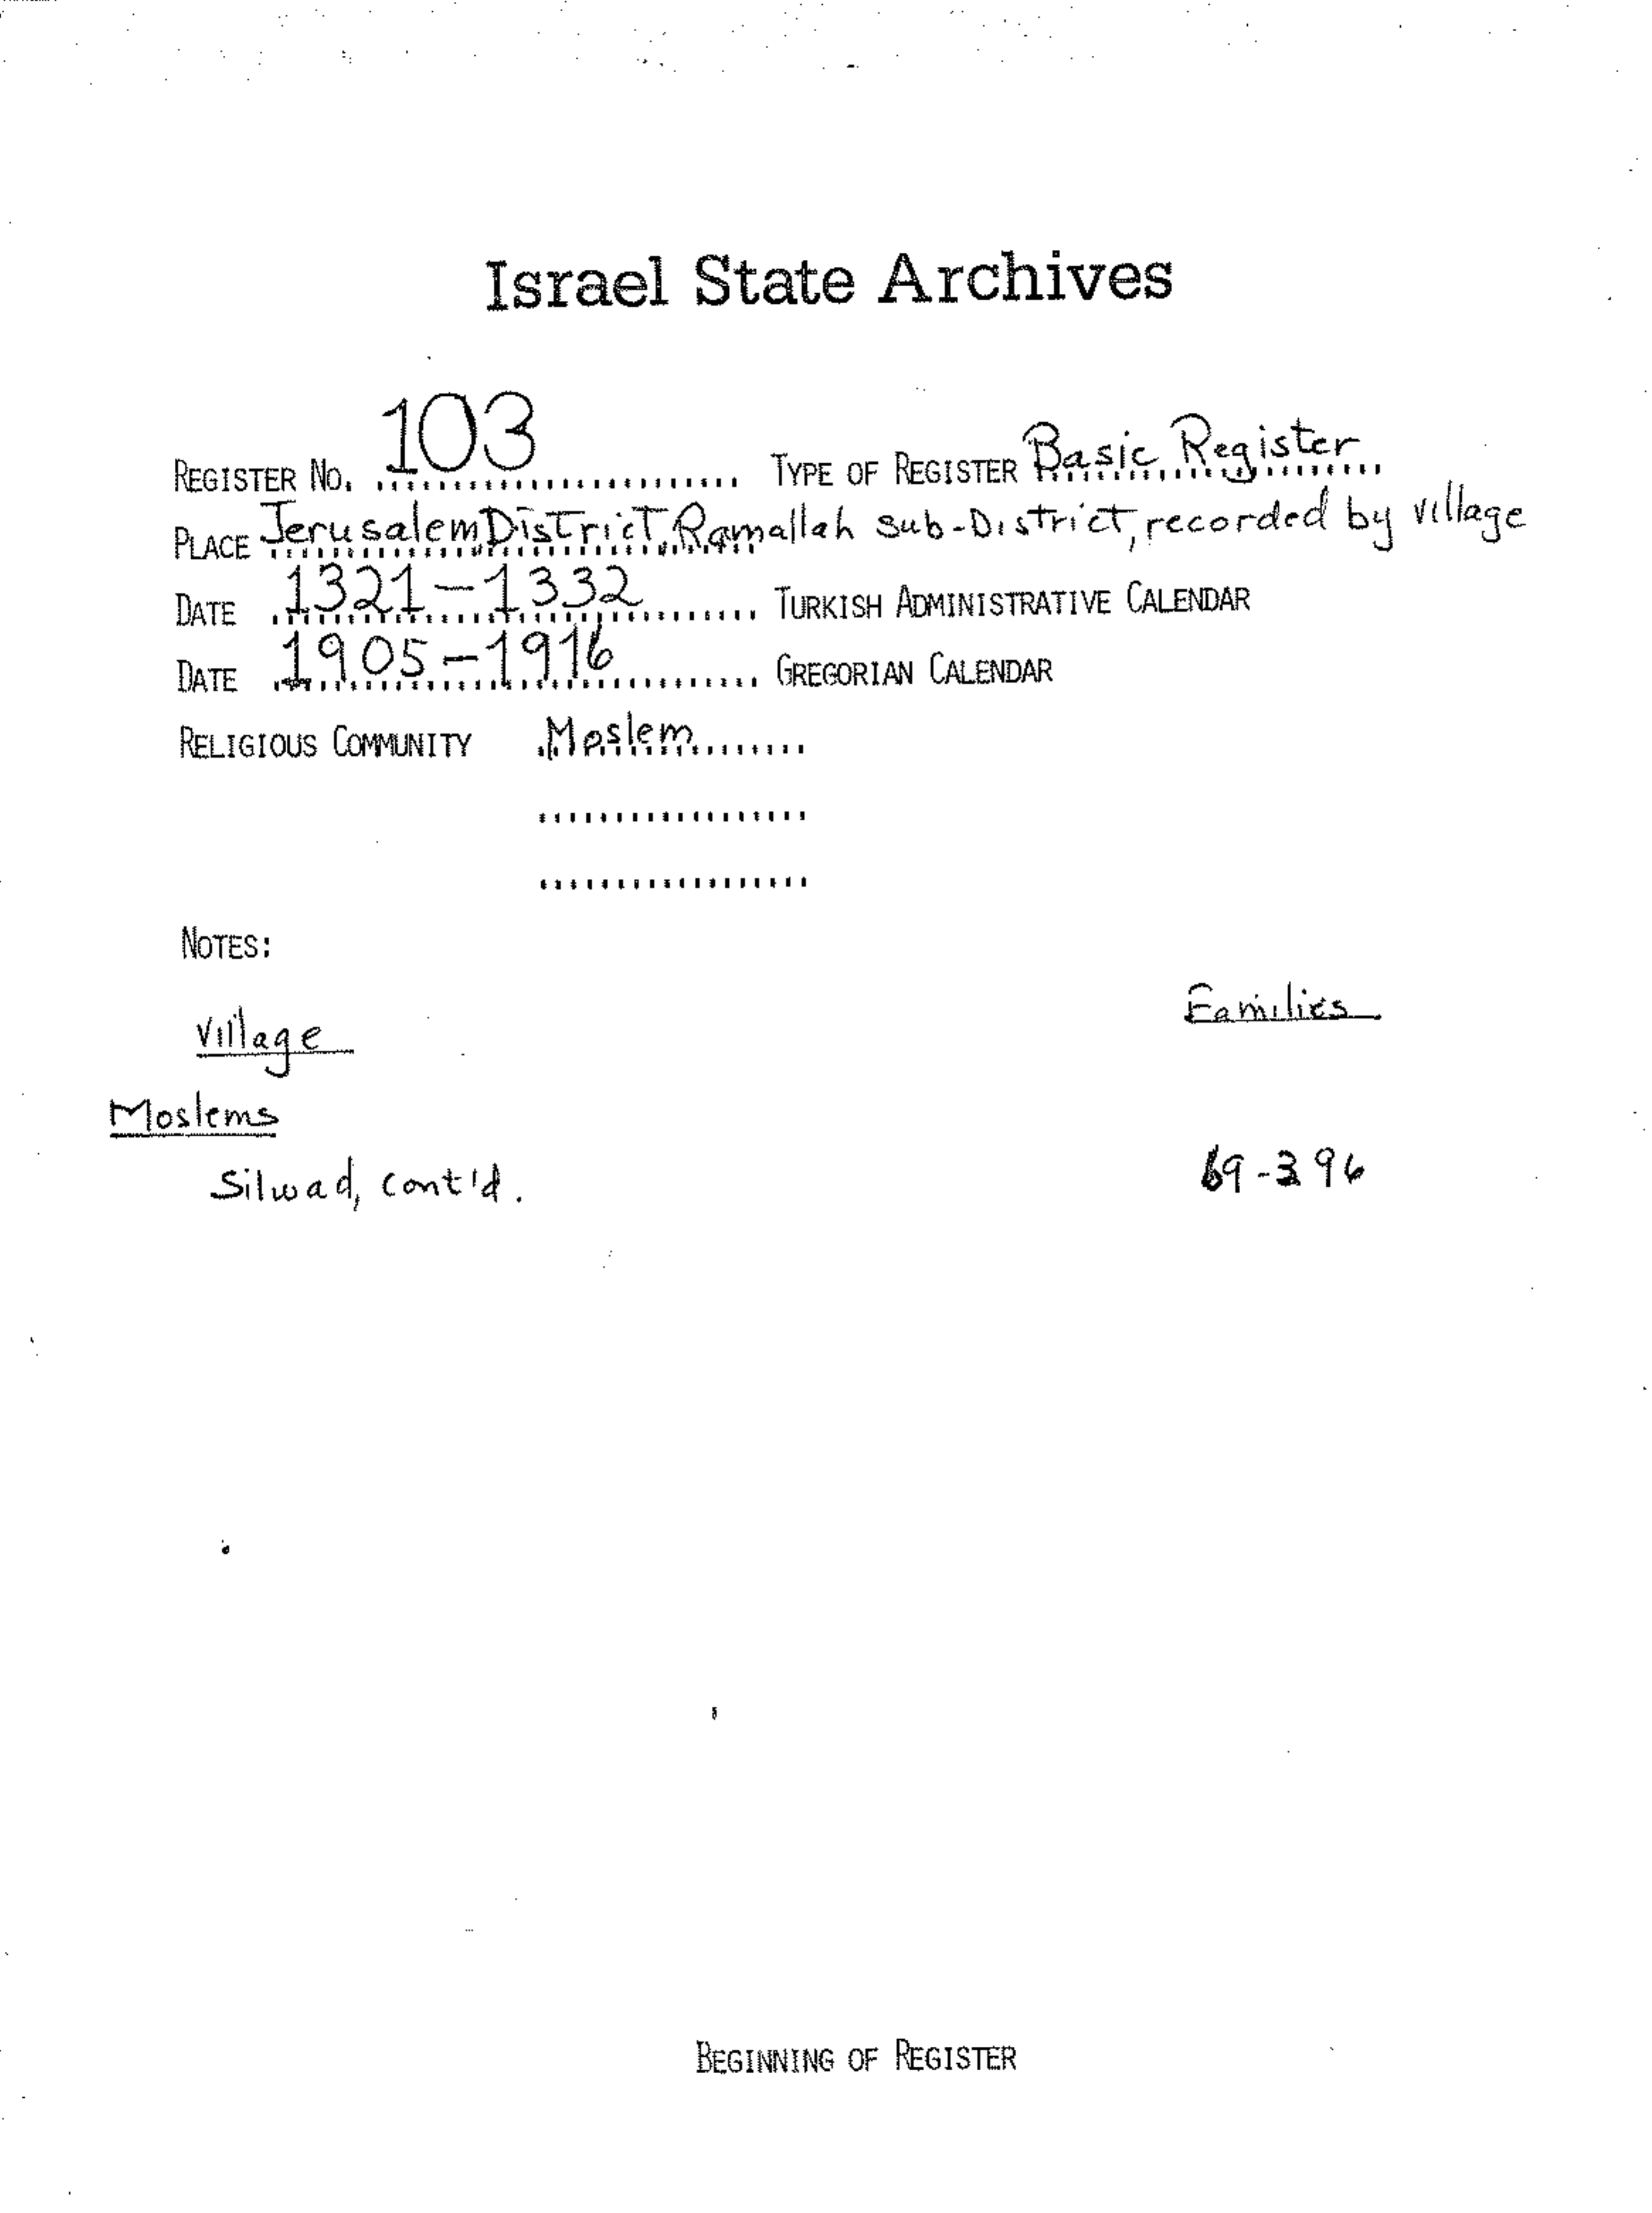 Israel State Archives
REGISTER NO. 103 TYPE OF REGISTER Basic Register
PLACE Jerusalem District, Ramallah Sub-District, recorded by village
DATE 1321-1332 TURKISH ADMINISTRATIVE CALENDAR
DATE 1905-1916 GREGORIAN CALENDAR
RELIGIOUS COMMUNITY Moslem
NOTES:
Village Families
Moslems
Silwad, cont'd. 69-396
BEGINNING OF REGISTER